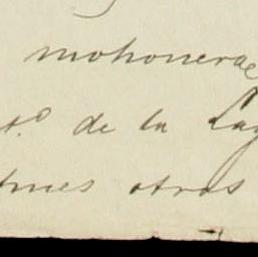 mohonera
de la Lag
otras